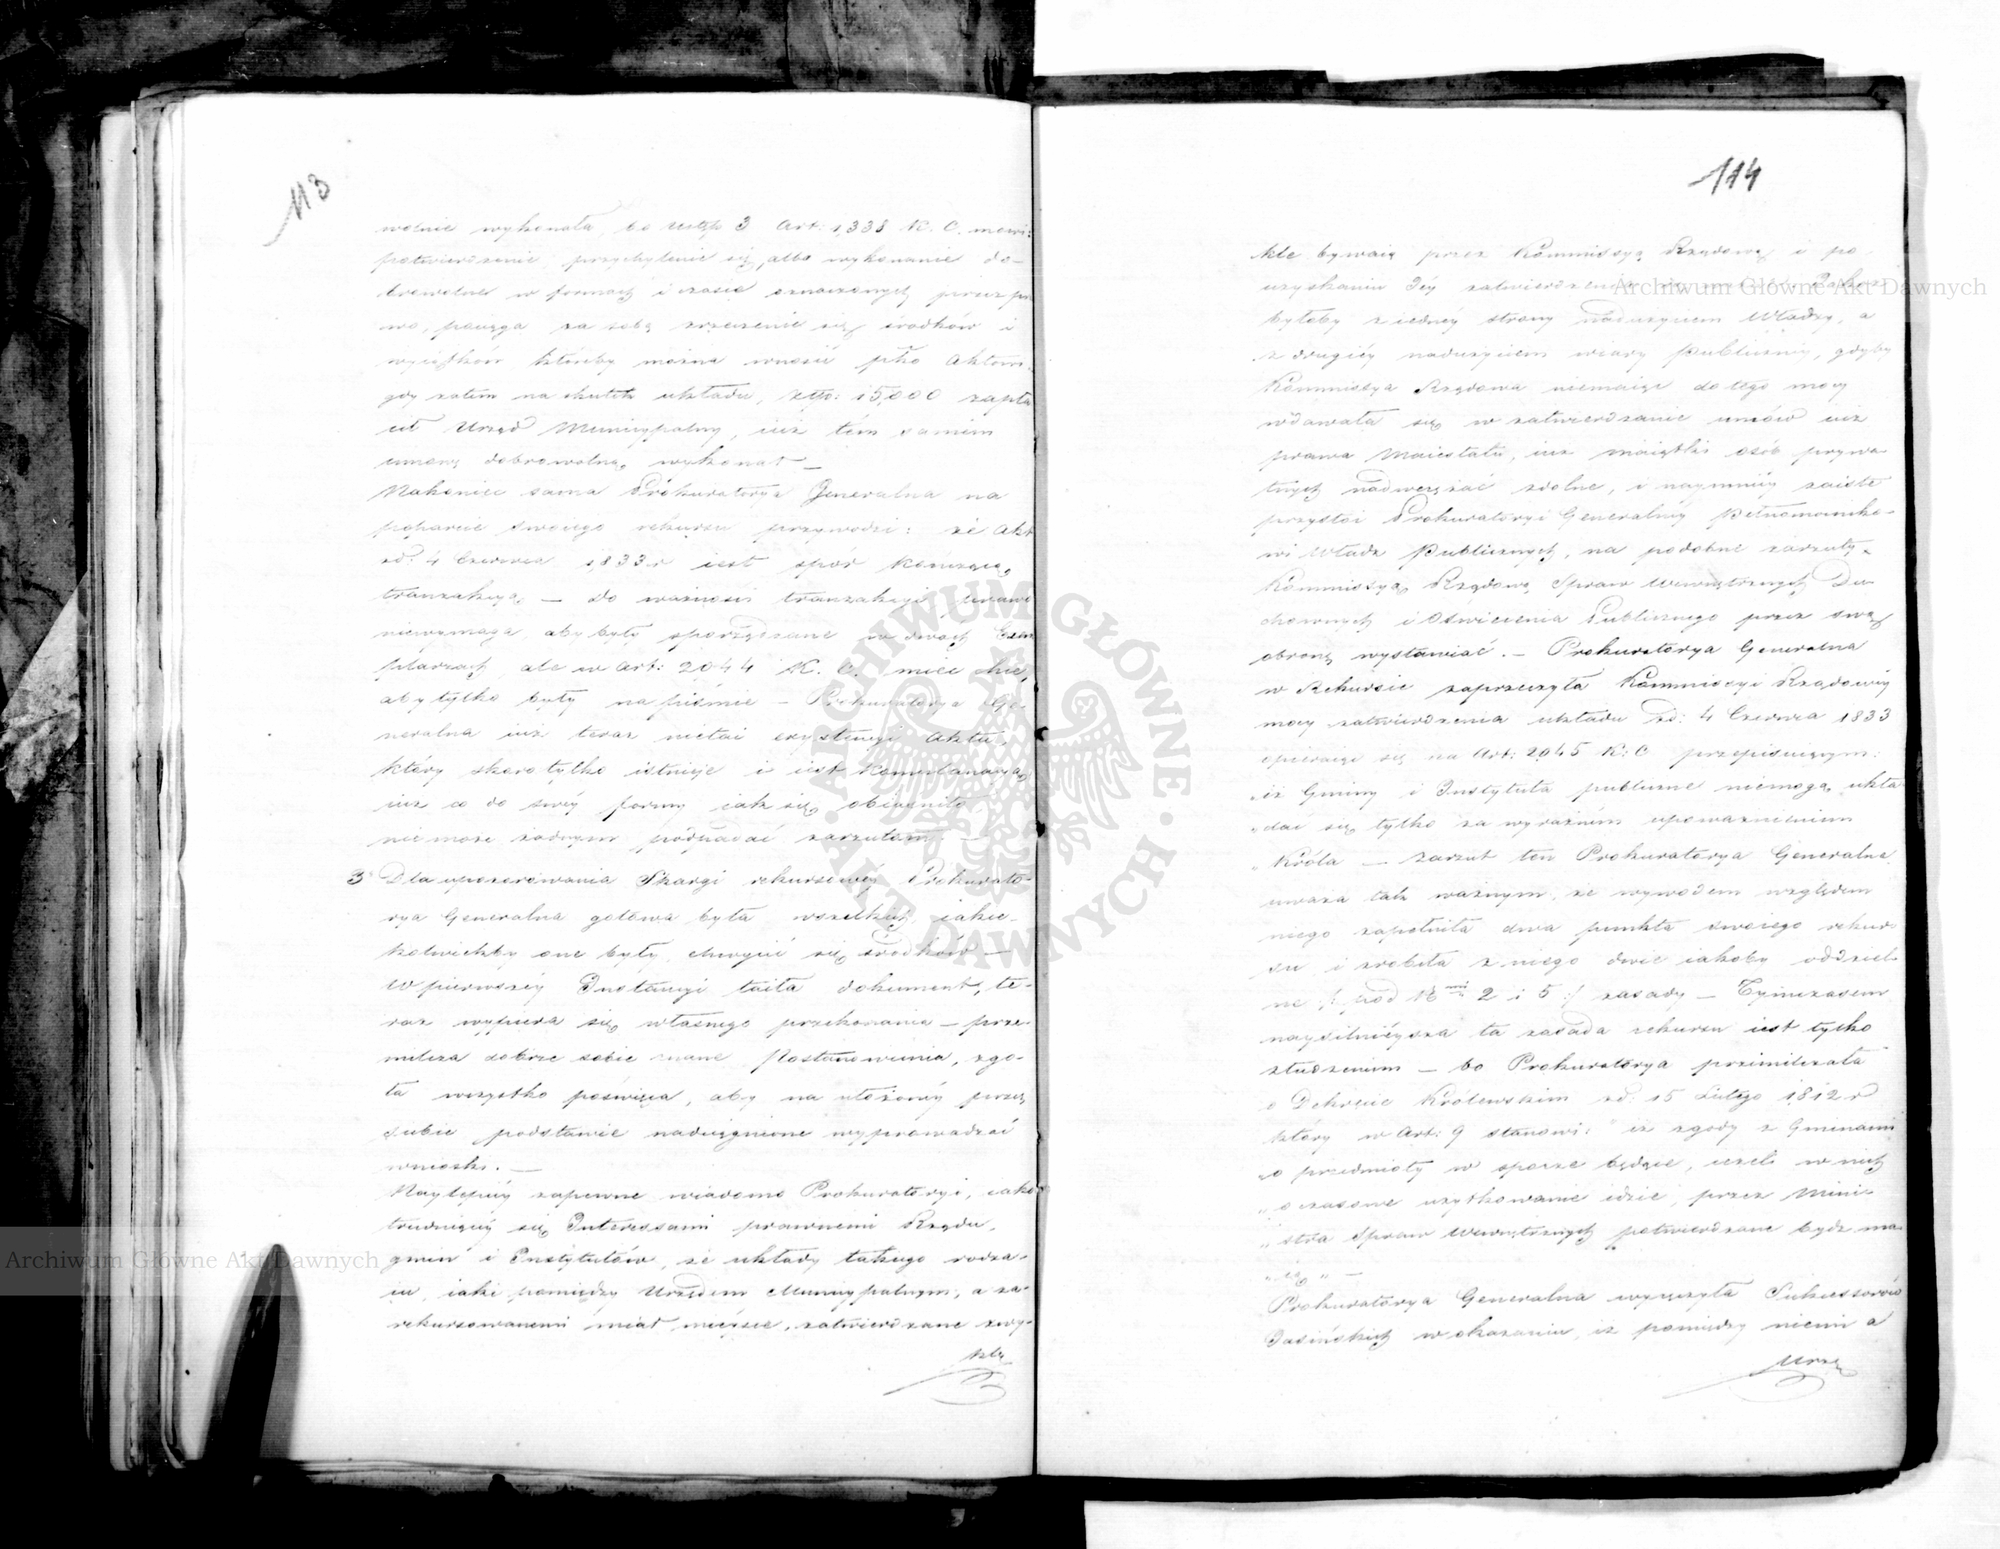 113
wolnie wykonała, bo ustęp 3 Art: 1,338 K. C. mowi:
potwierdzenie, przychylenie się, albo wykonanie do-
browolne w formach i czasie oznaczonych przez pra
wo, pociąga za sobą zrzeczenie się środków i
wyiątków któreby można wnosić p̃ko Aktowi.
gdy zatem na skutek układu, Złp: 15,000 zapła
cił Urząd Municypalny, iuż tém samém
umowę dobrowolnie wykonał —
Nakoniec sama Prokuratorya Jeneralna na
poparcie swoiego rekursu przywodzi: że Akt
zd. 4 Czerwca 1833 r iest spór kończącą
tranzakcyą — do ważności tranzakcyi prawo
niewymaga, aby były sporządzane w dwóch Exem
plarzach, ale w Art: 2044 K. C. mieć chce,
aby tylko były na piśmie — Prokuratorya Ge-
neralna iuż teraz nietai exystencyi Aktu,
który skoro tylko istnieje i iest
iuż co do swéy formy iak się obiaśniło
nie może żadnym podpadać zarzutom. —
3° Dla upozorowania Skargi rekursowéy Prokurato-
rya Generalna gotowa była wszelkich, iakie-
kolwiekby one były, chwycić się środków —
W pierwszéy Instancyi taiła dokument, te-
raz wypiera się własnego przekonania — prze-
milcza dobrze sobie znane Postanowienia, zgo-
ła wszystko poświęca, aby na ułożonéy przez
siebie podstawie naduciągnione wyprowadzać
wnioski. —
Naylepiéy zapewne wiadomo Prokuratoryi, iako
trudniącéy się Interessami prawnemi Rządu,
gmin i Instytutów, że układy takiego rodza-
iu, iaki pomiędzy Urzędem Municypalnym, a za-
rekursowanemi miał mieysce, zatwierdzane zwy-
kle
114
kle bywaią przez Kommissyą Rządową i po
uzyskaniu Jéy zatwierdzenia
byłoby z iednéy strony nadużyciem Władzy, a
z drugiéy nadużyciem wiary publicznéy, gdyby
Kommissya Rządowa niemaiąc do tego mocy
wdawała się w zatwierdzanie umów iuż
prawa Maiestatu, iuż maiątki osób prywa-
tnych nadwerężać zdolne, i naymniéy zaiste
przystoi Prokuratoryi Generalnéy Pełnomocniko-
wi Władz Publicznych, na podobne zarzuty
Kommissyą Rządową Spraw Wewnętrznych Du-
chownych i Oświecenia Publicznego przez swą
obronę wystawiać. — Prokuratorya Generalna
w Rekursie zaprzeczyła Kommissyi Rządowéy
mocy zatwierdzenia układu zd: 4 Czerwca 1833
opieraiąc się na Art: 2045 K: C przepisuiącym:
„iż Gminy i Instytuta publiczne niemogą ukła
„dać się tylko za wyraźném upoważnieniem
„Króla — zarzut ten Prokuratorya Generalna
uważa tak ważnym, że wywodem względem
niego zapełniła dwa punkta swoiego rekur-
su, i zrobiła z niego dwie iakoby oddziel-
ne /: pod N 2 i 5 :/ zasady — Tymczasem
naysilnieysza ta zasada rekursu iest tylko
złudzeniem — bo Prokuratorya przemilczała
o Dekrecie Królewskim zd: 15 Lutego 1812 r
który w Art: 9 stanowi: „iż zgody z Gminami
„o przedmioty w sporze będące, ieżeli w nich
„o czasowe użytkowanie idzie, przez Mini-
„stra Spraw Wewnętrznych potwierdzane bydź ma-
„ią" —
Prokuratorya Generalna wyręczyła Sukcessorów
Jasińskich w okazaniu, iż pomiędzy niemi a
Urzę
Archiwum Główne Akt Dawnych
Archiwum Główne Akt Dawnych
ARCHIWUM GŁÓWNE · AKT DAWNYCH ·